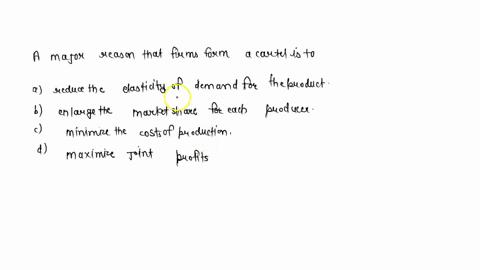 A major reason that firms form a cartel is to
a) reduce the elasticity of demand for the product.
b) enlarge the market share for each producer.
c) minimize the costs of production.
d) maximize joint profits